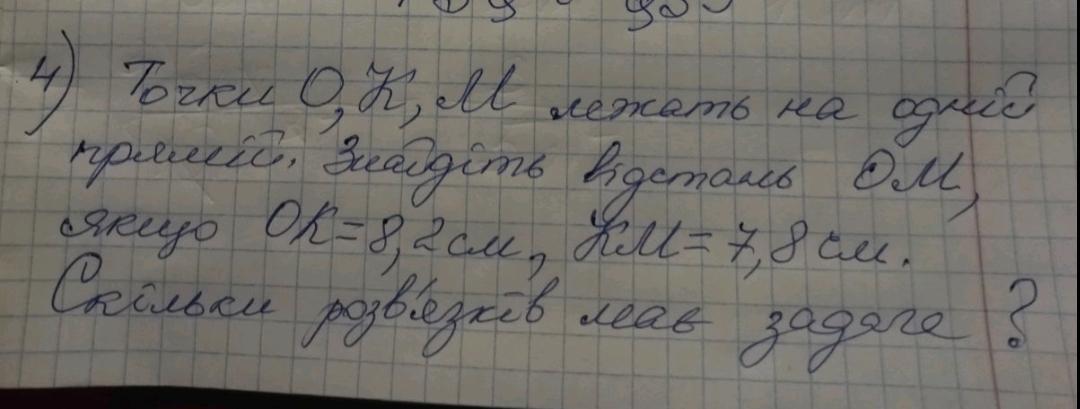 4) Точки О, К, М лежать на одній
прямій. Знайдіть відстань ОМ,
якщо ОК = 8,2 см, КМ = 7,8 см.
Скільки розв'язків має задача ?